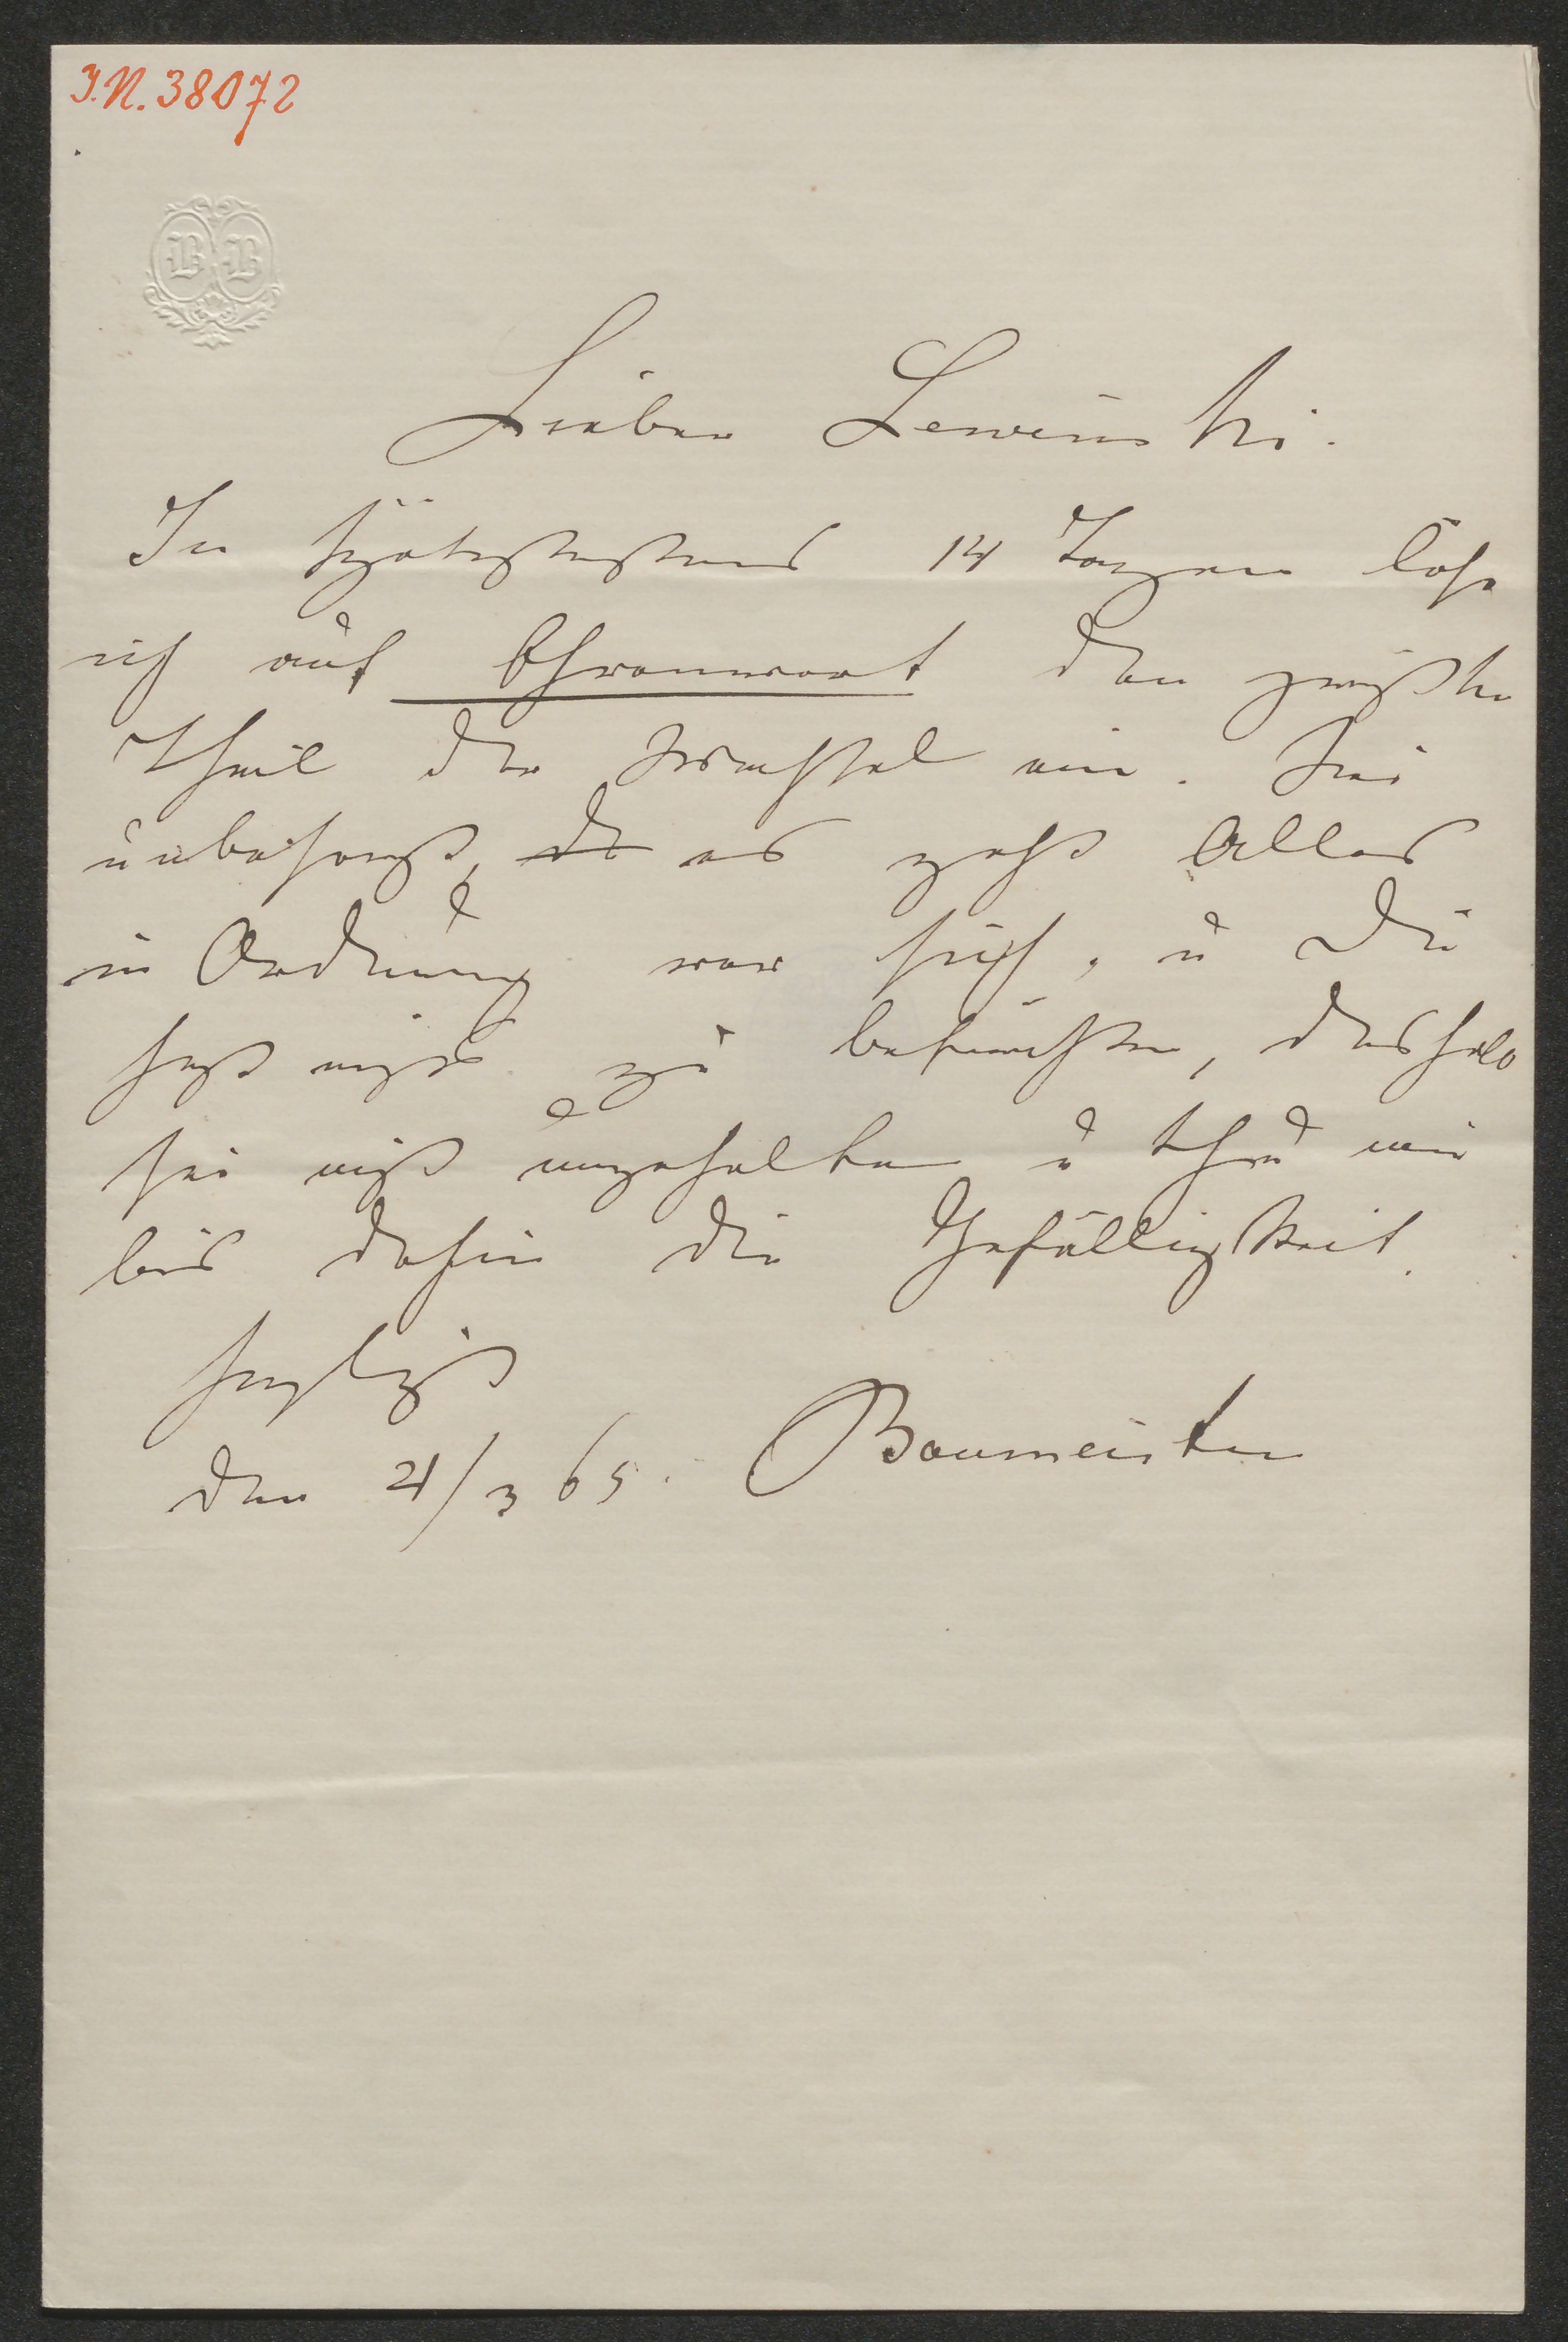 I.N. 38072
B B
Lieber Lewinski.
In spätestestens 14 Tagen löse
ich auf Ehrenwort den größten
Theil der Wechsel ein. Sei
unbesorgt, es geht Alles
in Ordnung vor sich, u Du
hast nichts zu befürchten, deshalb
sei nicht ungehalten u thu mir
bis dahin die Gefälligkeit.
herzlichst
den 21/3 65. Baumeister